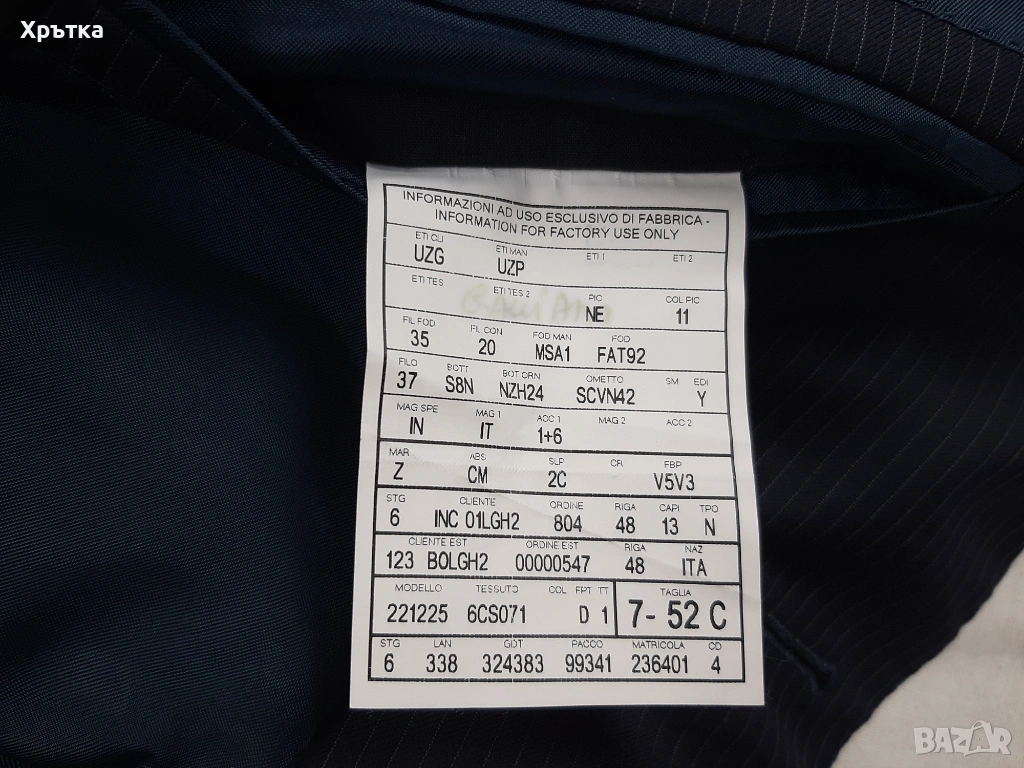 Хрътка
INFORMAZIONI AD USO ESCLUSIVO DI FABBRICA -
INFORMATION FOR FACTORY USE ONLY
ETI CLI ETI MAN ETI 1 ETI 2
UZG UZP
ETI TES ETI TES 2 PIC COL PIC
NE 11
FIL FOD FIL CON FOD MAN FOD
35 20 MSA1 FAT92
FILO BOTT BOT CRN OMETTO SM EDI
37 S8N NZH24 SCVN42 Y
MAG SPE MAG 1 ACC 1 MAG 2 ACC 2
IN IT 1+6
MAR ABS SLP CR FBP
Z CM 2C V5V3
STG CLIENTE ORDINE RIGA CAPI TPO
6 INC 01LGH2 804 48 13 N
CLIENTE EST ORDINE EST RIGA NAZ
123 BOLGH2 00000547 48 ITA
MODELLO TESSUTO COL FPT TT TAGLIA
221225 6CS071 D 1 7- 52 C
STG LAN GDT PACCO MATRICOLA CD
6 338 324383 99341 236401 4
BAZAR